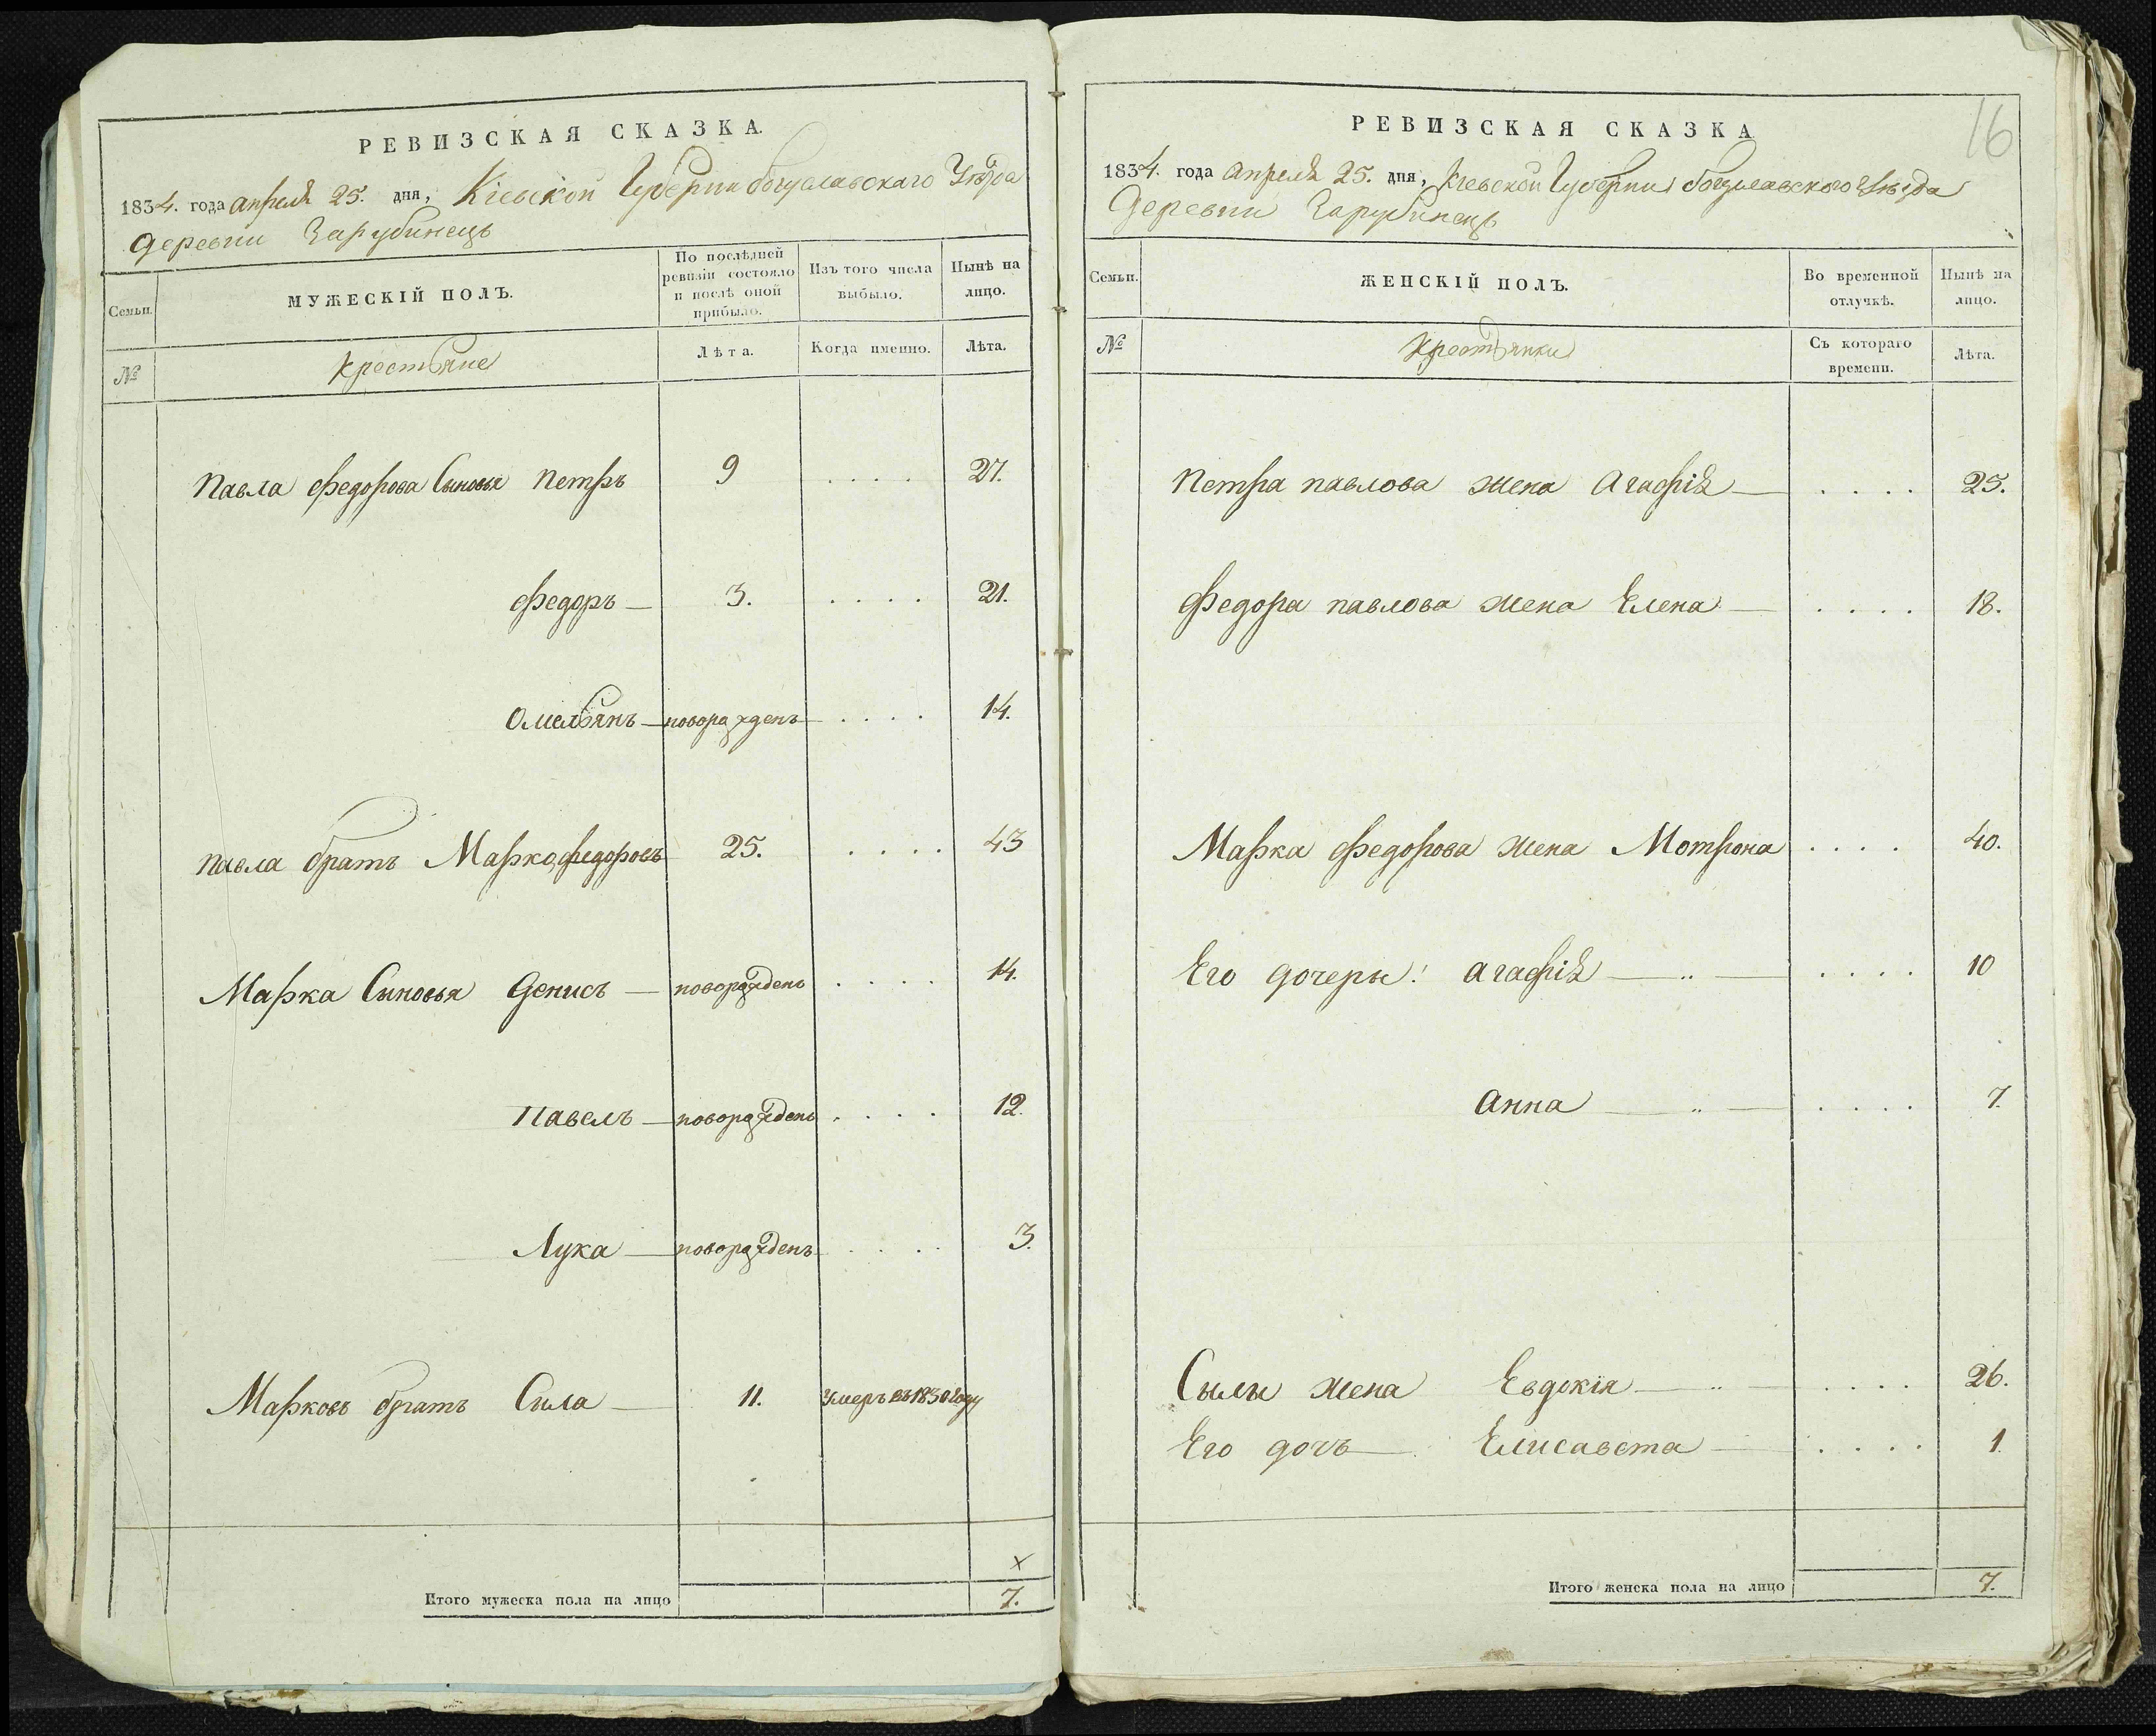 РЕВИЗСКАЯ СКАЗКА.
1834. года апреля 25. дня, Кіевской Губерніи богуславскаго Уѣзда
деревни Зарубинецъ
Семьи.
МУЖЕСКІЙ ПОЛЪ.
По послѣдней ревизіи состояло и послѣ оной прибыло.
Изъ того числа выбыло.
Нынѣ на лицо.
№
крестьяне
Лѣта.
Когда именно.
Лѣта.
Павла Федорова Сыновья Петръ 9 .... 27.
Федоръ — 3. .... 21.
Омельянъ — новоражденъ .... 14.
Павла братъ Марко Федоровъ 25. .... 43
Марка Сыновья Денисъ — новоражденъ .... 14.
Павелъ — новоражденъ .... 12.
Лука — новоражденъ .... 3.
Марковъ братъ Сыла — 11. Умеръ въ 1830 году
×
Итого мужеска пола на лицо 7.
16
РЕВИЗСКАЯ СКАЗКА
1834. года апреля 25. дня, Кіевской Губерніи богуславскаго Уѣзда
Деревни Зарубинецъ
Семьи.
ЖЕНСКІЙ ПОЛЪ.
Во временной отлучкѣ.
Нынѣ на лицо.
№
Крестьянки
Съ котораго времени.
Лѣта.
Петра павлова жена Агафія — .... 25.
Федора павлова жена Елена — .... 18.
Марка Федорова жена Мотрона .... 40.
Его дочеры: агафія — .... 10
Анна — .... 7.
Сылы жена Евдокія — .... 26.
Его дочь — Елисавета — .... 1.
Итого женска пола на лицо 7.